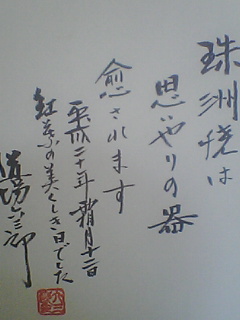 珠洲焼は
思いやりの器
癒されます
平成二十年霜月十二日
紅葉の美くしき日でした
道場六三郎